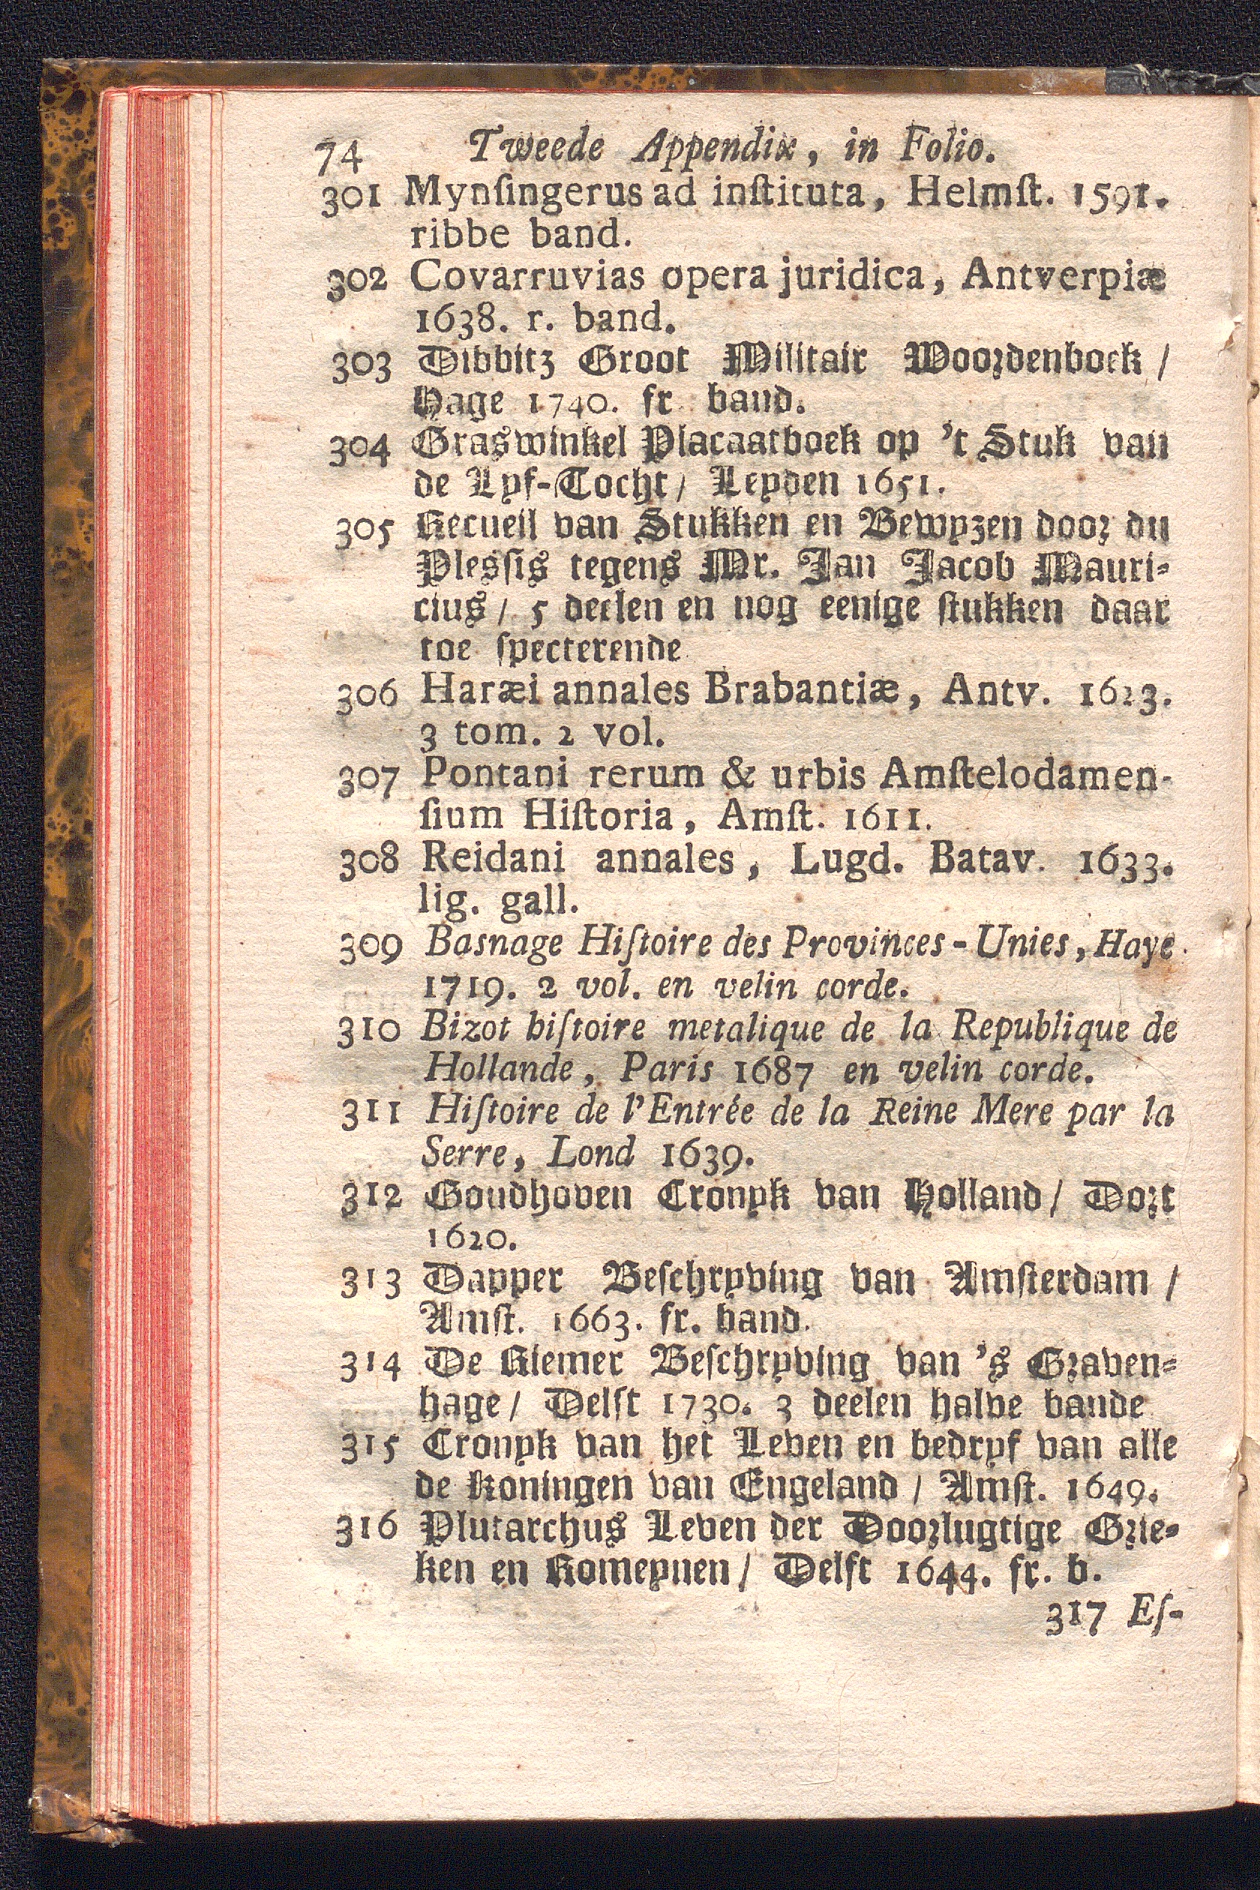 74 Tweede Appendix, in Folio.
301 Mynſingerus ad inſtituta, Helmſt. 1591.
ribbe band.
302 Covarruvias opera juridica, Antverpiæ
1638. r. band.
303 Dibbitz Groot Militair Woordenboek /
Hage 1740. fr band.
304 Graswinkel Placaatboek op 't Stuk van
de Lyf-Tocht / Leyden 1651.
305 Recueil van Stukken en Bewyzen door du
Plesſis tegens Mr. Jan Jacob Mauri-
cius / 5 deelen en nog eenige ſtukken daar
toe ſpecterende
306 Haræi annales Brabantiæ, Antv. 1623.
3 tom. 2 vol.
307 Pontani rerum & urbis Amſtelodamen-
ſium Hiſtoria, Amſt. 1611.
308 Reidani annales, Lugd. Batav. 1633.
lig. gall.
309 Basnage Hiſtoire des Provinces-Unies, Haye
1719. 2 vol. en velin corde.
310 Bizot hiſtoire metalique de la Republique de
Hollande, Paris 1687 en velin corde.
311 Hiſtoire de l'Entrée de la Reine Mere par la
Serre, Lond 1639.
312 Goudhoven Cronyk van Holland / Dort
1620.
313 Dapper Beſchryving van Amſterdam /
Amſt. 1663. fr. band.
314 De Riemer Beſchryving van 's Graven-
hage / Delft 1730. 3 deelen halve bande
315 Cronyk van het Leven en bedryf van alle
de Koningen van Engeland / Amſt. 1649.
316 Plutarchus Leven der Doorlugtige Grie-
ken en Romeynen / Delft 1644. fr. b.
317 Eſ-